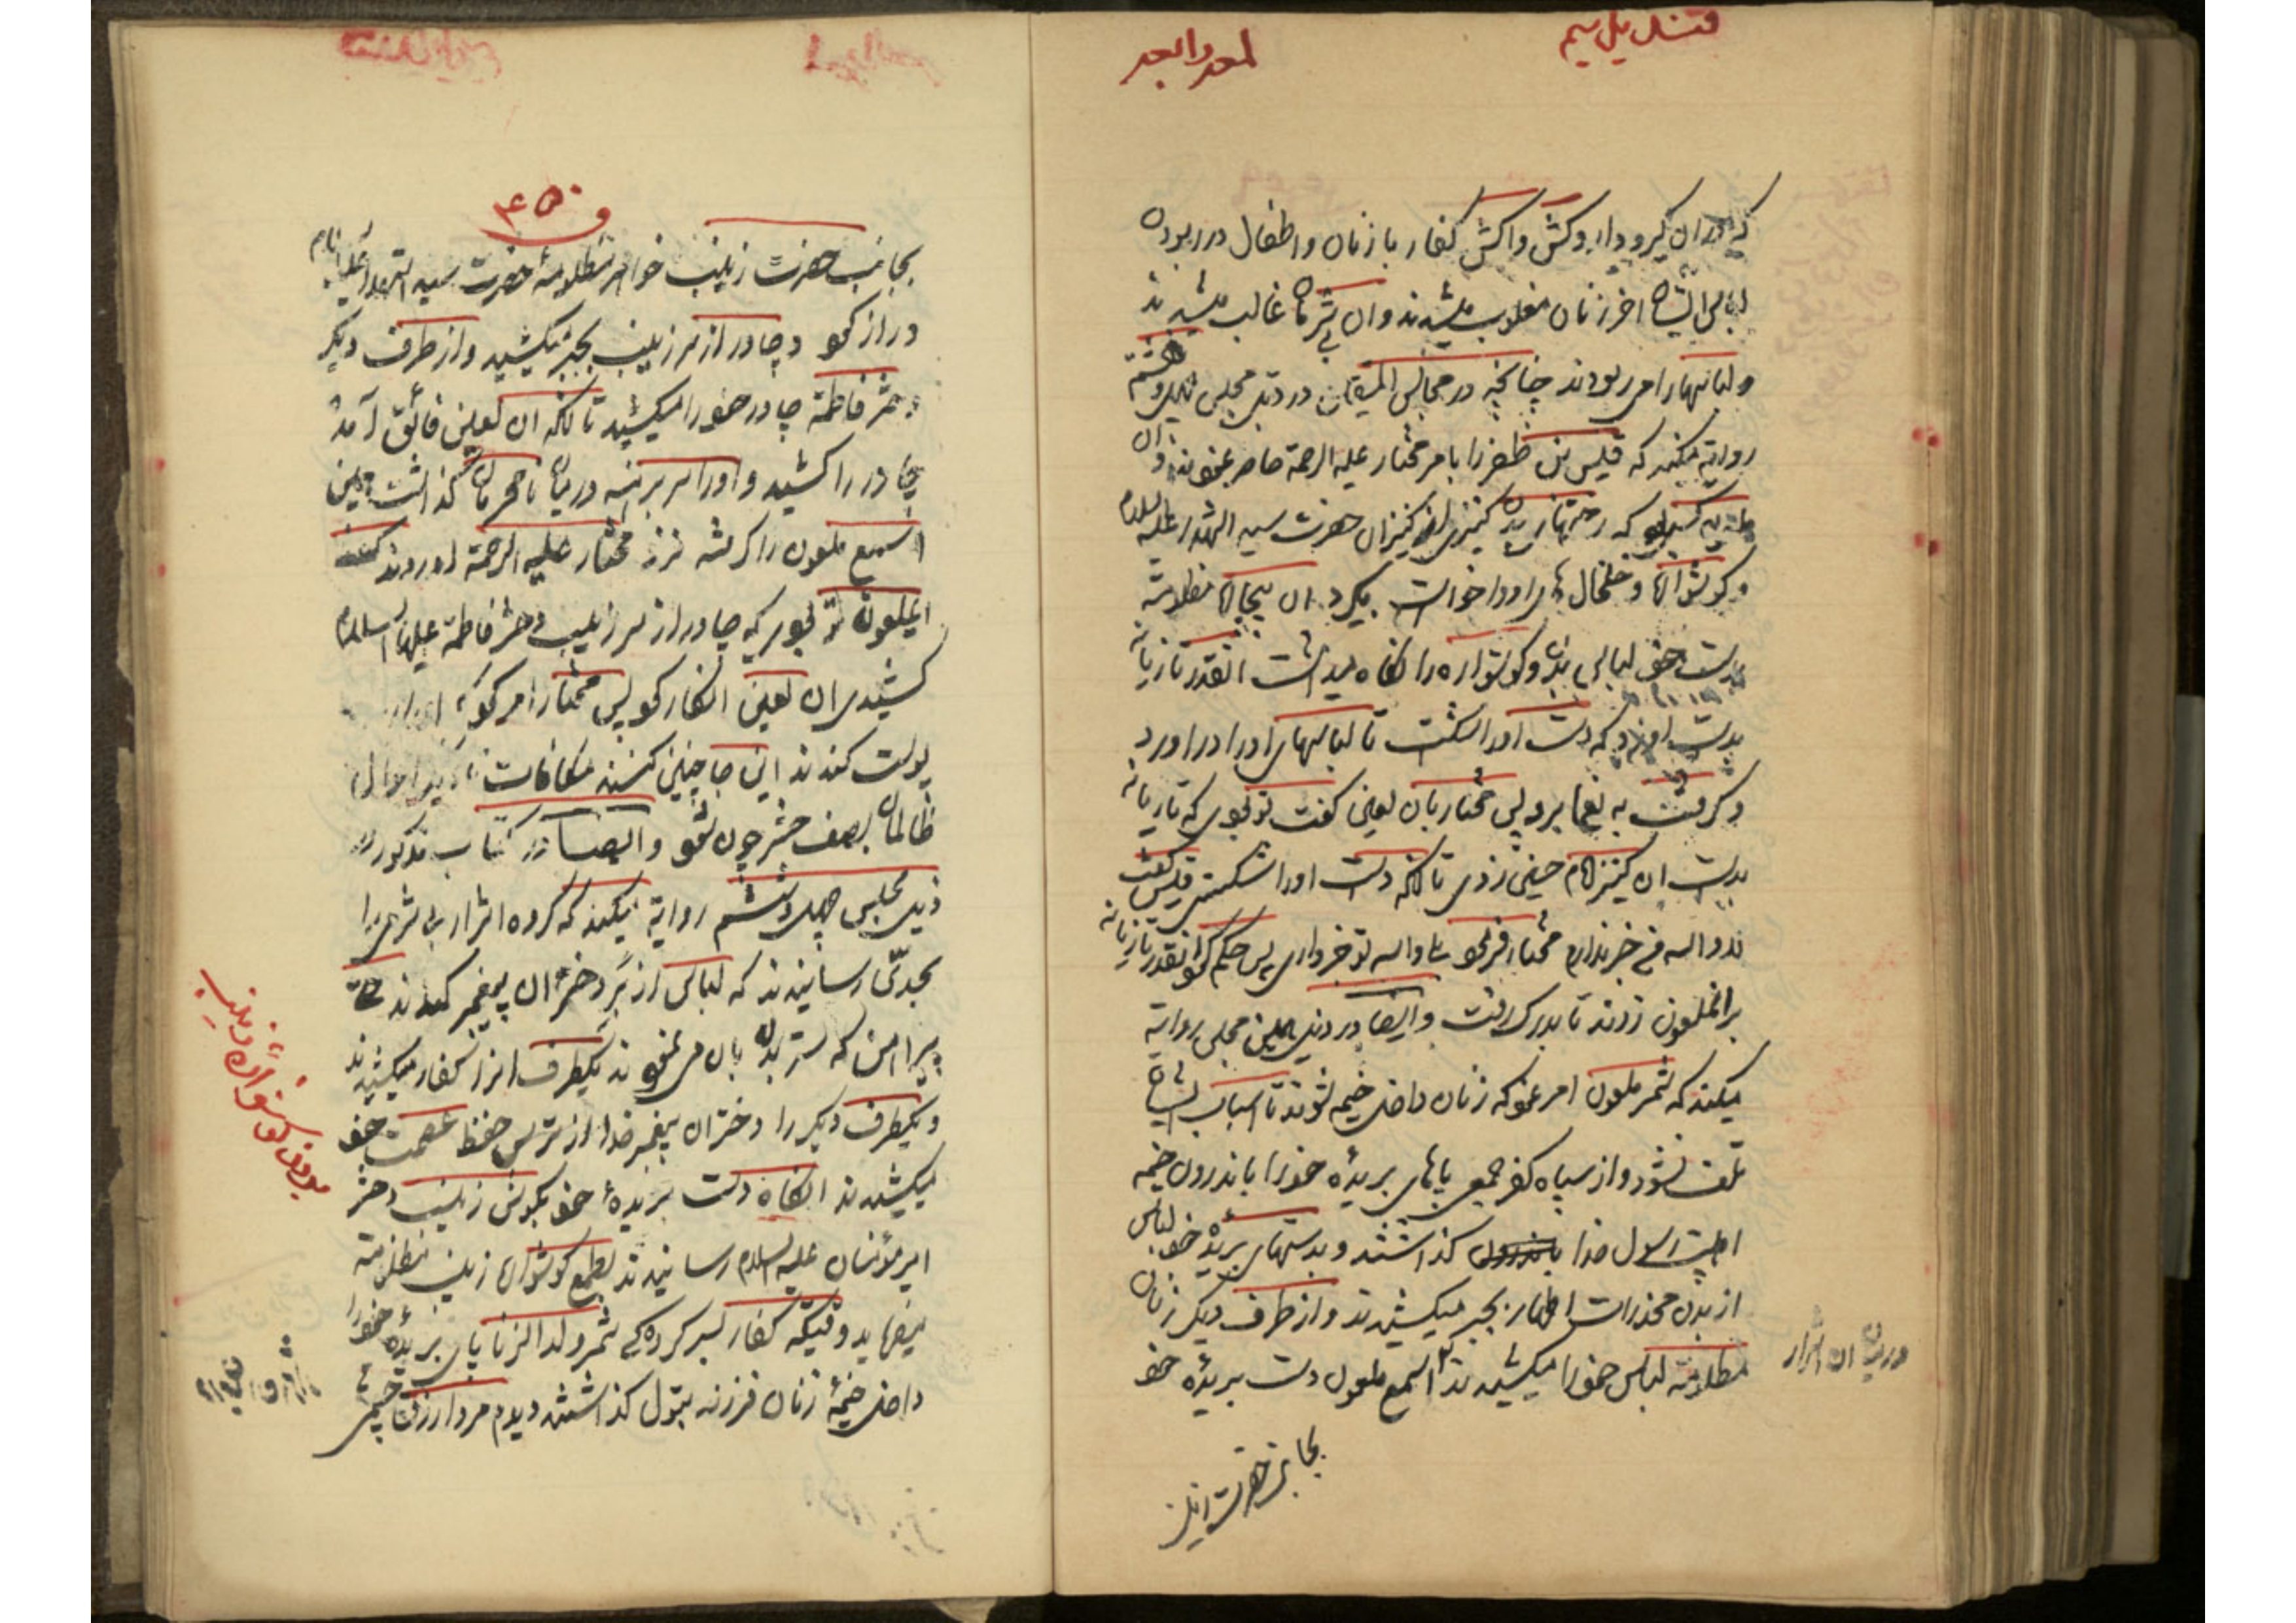 لمعد والجد
که دران گیرودار وکش واکش کفار با زنان و اطفال در ربودن
لباس ایشان اخر زنان مغلوب میشدند و ان بی شرمان غالب میشدند
و لباسهارا می ربودند چنانچه در مجالس المتقین در ذیل مجلس چهل و هشتم
روایة میکند که قیس بن ظفر را بامر مختار علیه الرحمة حاضر نمودند و ان
کسی بود که رختهای بدن کنیزی از کنیزان حضرت سید الشهدا علیه السلام
و گوشوارها و خلخال های او را خواست بگیرد ان بیچاره مظلومه
بدست خود لباس بدن و گوشواره را نگاه میداشت انقدر تازیانه
بدست او زد که دست او را شکست تا لباسهای او را در اورد
و گرفت به یغما برد پس مختار بان لعین گفت تو بودی که تازیانه
بدست ان کنیز امام حسین زدی تا انکه دست او را شکستی قیس گفت
نه والله من خبر ندارم مختار فرمود بلی والله تو خبر داری پس حکم کرد انقدر تازیانه
بر انملعون زدند تا بدرک رفت و ایضا در ذیل همین مجلس روایة
میکند که شمر ملعون امر نمود که زنان داخل خیمه نشوند تا اسباب ایشان
تلف نشود و از سپاه کفر جمعی پاهای بریدهٔ خود را باندرون خیمه
اهلبیت رسول خدا گذاشتند و بدستهای بریدهٔ خود لباس
از بدن مخذرات اطهار بجبر میکشیدند و از طرف دیگر زنان
مظلومه لباس خود را میکشیدند اسمع ملعون دست بریدهٔ خود
در میان ان اشرار
بجانب حضرت زینب
۴۵۰
بجانب حضرت زینب خواهر مظلومهٔ حضرت سید الشهدا علیه السلام
دراز کرد و چادر از سر زینب بجبر میکشید و از طرف دیگر
دختر فاطمة چادر خود را میکشید تا انکه ان لعین فائق آمد
چادر را کشید و او را سر برهنه در میان نامحرمان گذاشت همین
اسمع ملعون را گرفته نزد مختار علیه الرحمة اوردند گفت
ایملعون تو بودی که چادر از سر زینب دختر فاطمة علیها السلام
کشیدی ان لعین انکار کرد پس مختار امر کرد
پوست کندند این جا چنین کنند مکافات احوال
ظالمان بصف حشر چون شود و ایضا در کتاب مذکور در
ذیل مجلس چهل و هشتم روایة میکند که گروه اشرار بی شرمی را
بجدّی رسانیدند که لباس از بَر دختران پیغمبر کندند حتی
پیراهن که ستر بدن بان می نمودند یکطرف انرا کفار میکشیدند
و یکطرف دیگر را دختران پیغمبر خدا از ترس حفظ عصمت خود
میکشیدند انگاه دست بریدهٔ خود بگوش زینب دختر
امیر مؤمنان علیه السلام رسانیدند بطمع گوشواره زینب مظلومه
میفرماید وقتیکه کفار بسر کردگی شمر ولد الزنا پای بریدهٔ خود را
داخل خیمهٔ زنان فرزند بتول گذاشتند دیدم مرد ازرق چشمی
بردن گوشواره زینب